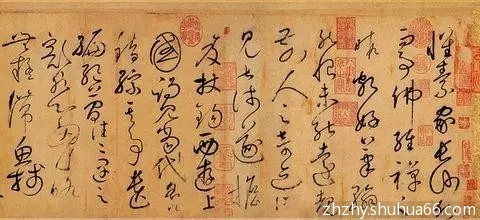 懷素家長沙幼而
事佛經禪之
暇頗好筆翰
然恨未能遠覩
前人之奇迹所
見甚淺遂擔
笈杖錫西遊上
國謁見當代名公
錯綜其事遺
編絕簡往往遇之
豁然心胸略
無疑滯魚牋
zhzhy.shuhua66.com